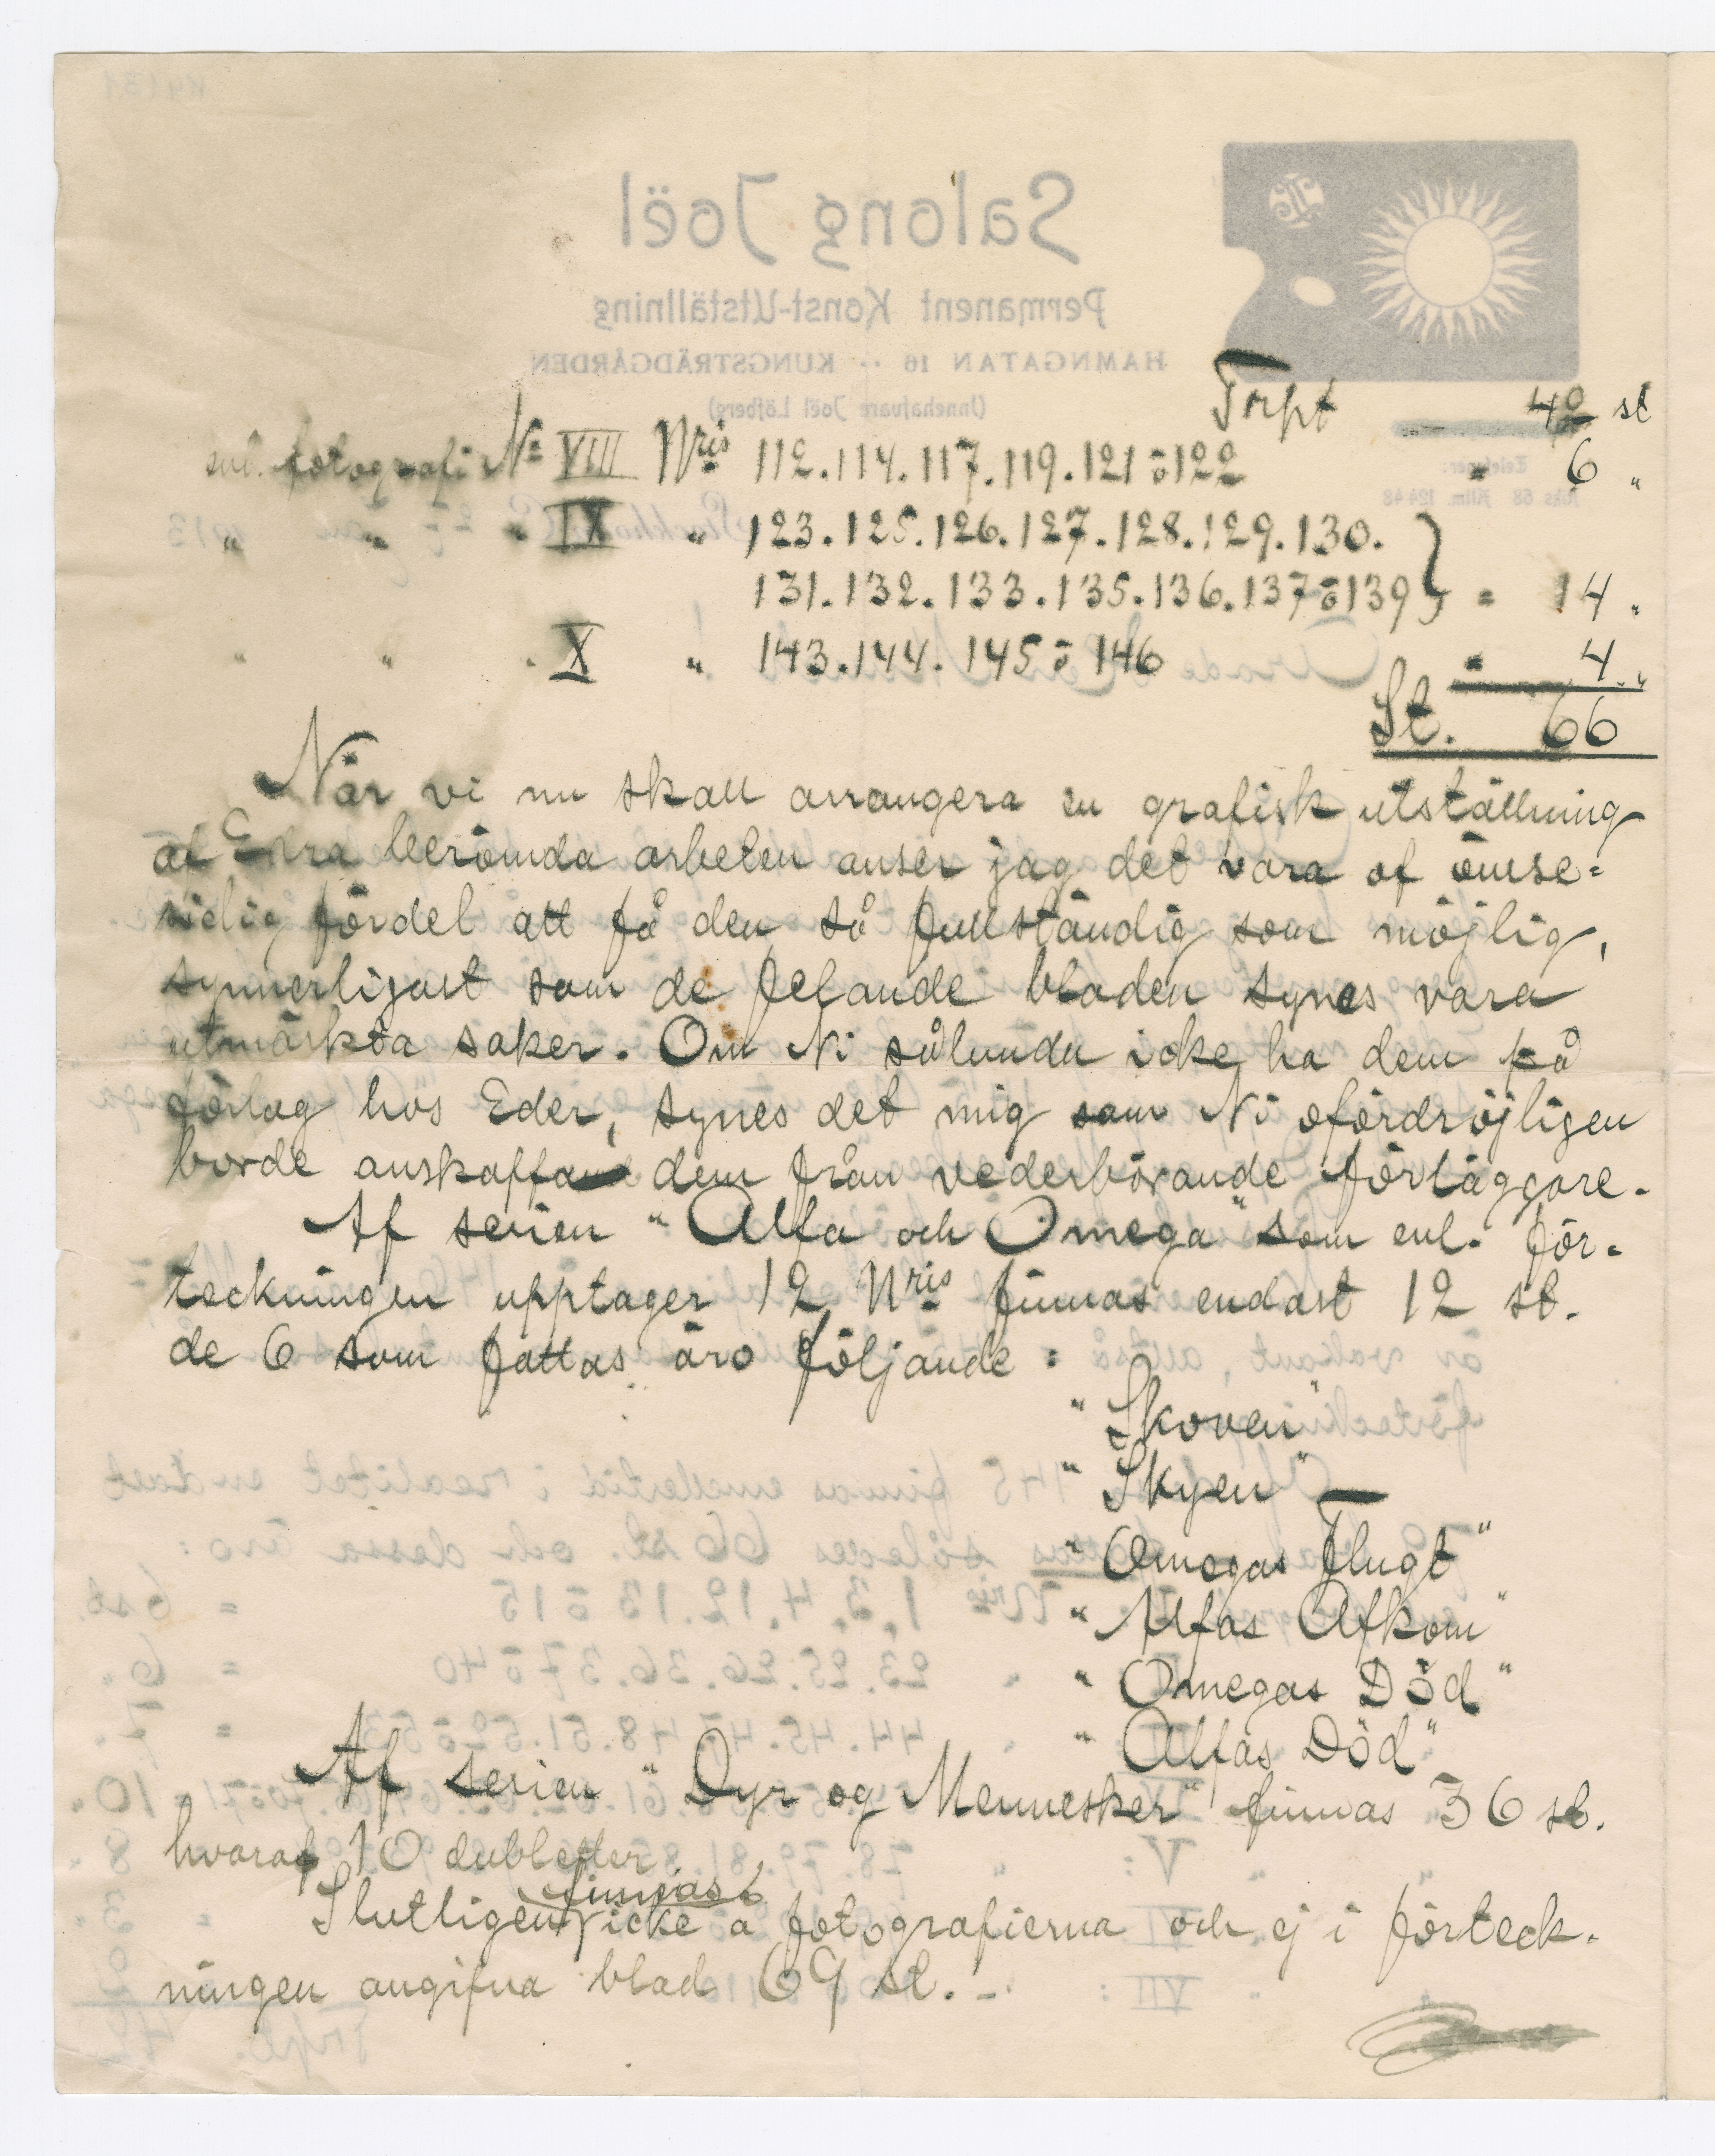 Trpt 42 st
enl. fotografi No VIII Nris 112.114.117.119.121 o 122 = 6 "
" " " IX " 123.125.126.127.128.129.130.
131.132.133.135.136.137 o 139} = 14 "
" " " X " 143.144.145 o 146 = 4 "
St. 66
När vi nu skall arrangera en grafisk utställning
af Edra berömda arbeten anser jag det vara af ömse=
sidig fördel att få den så fullständig som möjlig,
synnerligast som de felande bladen synes vara
utmärkta saker. Om Ni sålunda icke ha dem på
förlag hos Eder, synes det mig som Ni ofördröjligen
borde anskaffa dem från vederbörande förläggare.
Af serien "Alfa och Omega" som enl. för=
teckningen upptager 12 Nris finnas endast 12 st.
de 6 som fattas äro följande:
"Skoven"
"Skyen" —
"Omegas Flugt"
"Alfas Afkom"
"Omegas Död"
"Alfas Död"
Af serien "Dyr og Mennesker" finnas 36 st.
hvaraf 10 dubletter.
finnas
Slutligen icke a fotografierna och ej i förteck=
ningen angifna blad 69 st. -
Salong Joël
Permanent Konst-Utställning
HAMNGATAN 16 ·· KUNGSTRÄDGÅRDEN
(Innehafvare Joël Löfberg)
Telefoner:
Riks 68 Allm. 12448